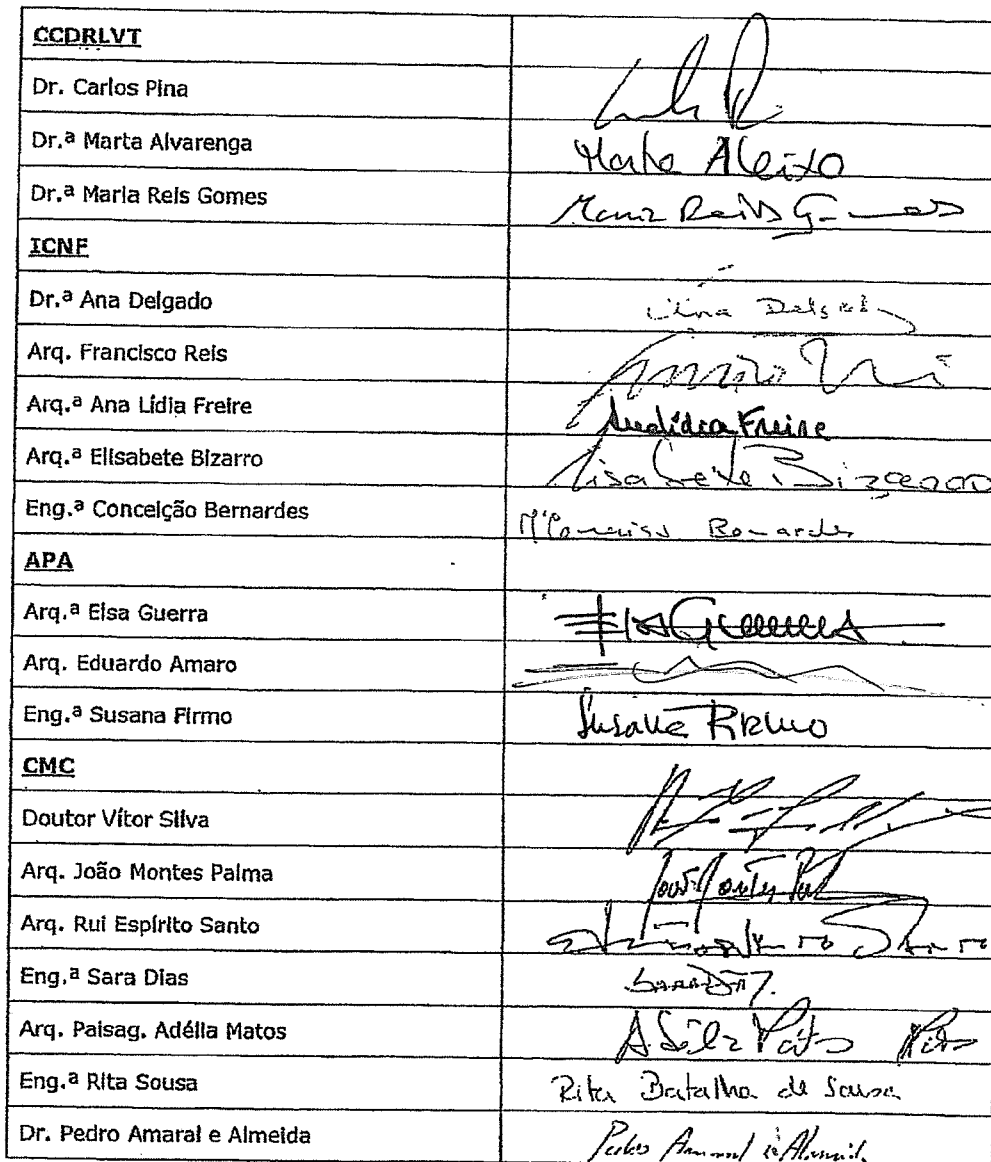 CCDRLVT
Dr. Carlos Pina
Dr.ª Marta Alvarenga Marta Aleixo
Dr.ª Maria Reis Gomes Maria Reis Gomes
ICNF
Dr.ª Ana Delgado Ana Delgado
Arq. Francisco Reis
Arq.ª Ana Lídia Freire Analídia Freire
Arq.ª Elisabete Bizarro Elisabete Bizarro
Eng.ª Conceição Bernardes Bernardes
APA
Arq.ª Elsa Guerra Elsa
Arq. Eduardo Amaro
Eng.ª Susana Firmo Susana Firmo
CMC
Doutor Vítor Silva
Arq. João Montes Palma
Arq. Rui Espírito Santo
Eng.ª Sara Dias Sara Dias
Arq. Paisag. Adélia Matos Adélia Matos
Eng.ª Rita Sousa Rita Batalha de Sousa
Dr. Pedro Amaral e Almeida Pedro Amaral e Almeida